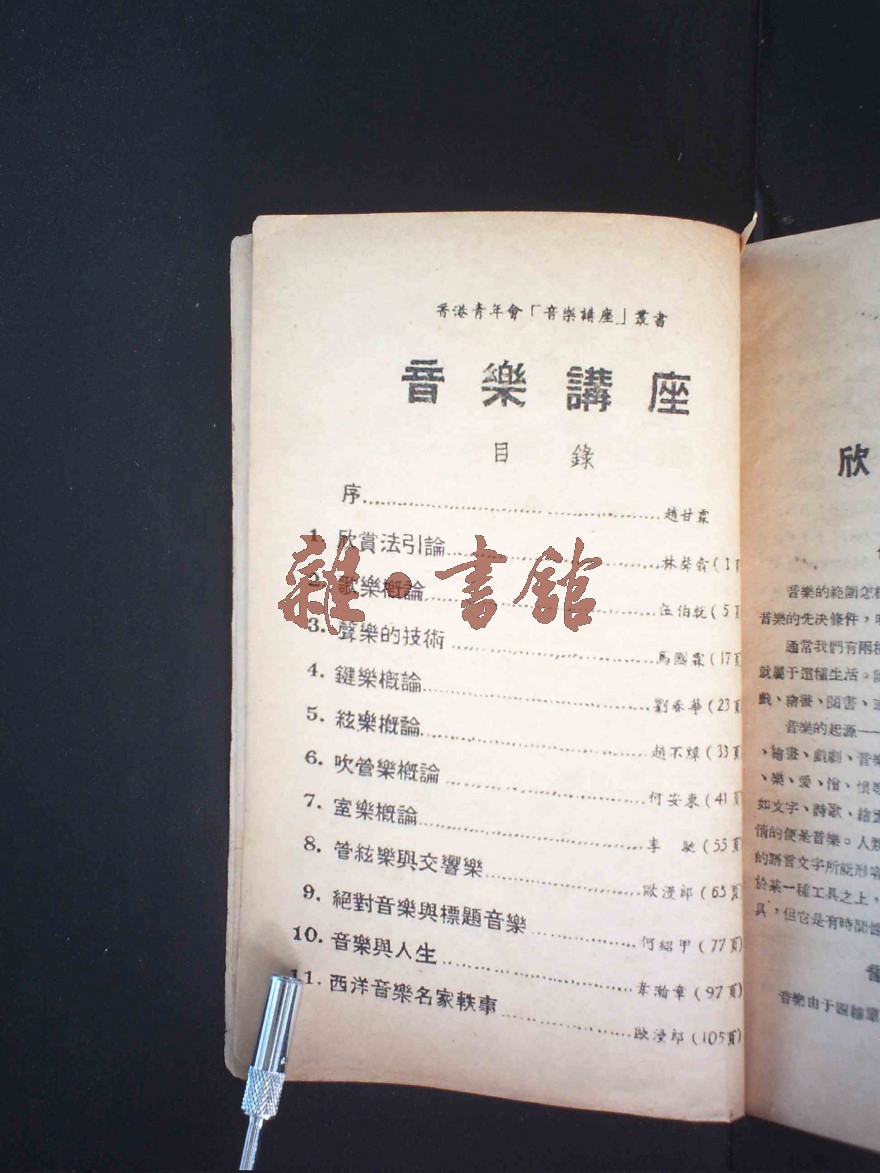 香港青年會「音樂講座」叢書
音樂講座
目錄
序……趙甘霖
1. 欣賞法引論……林聲翕(1頁
2. 歌樂概論……伍伯就(5頁
3. 聲樂的技術……馬國霖(17頁
4. 鍵樂概論……劉春華(23頁
5. 絃樂概論……趙不煒(33頁
6. 吹管樂概論……何安東(41頁
7. 室樂概論……李 馳(55頁
8. 管絃樂與交響樂……歐漫郎(65頁
9. 絕對音樂與標題音樂……何紹甲(77頁)
10. 音樂與人生……韋瀚章(97頁)
11. 西洋音樂名家軼事……歐漫郎(105頁)
雜·書館
欣
音樂的範圍怎
音樂的先決條件,
通常我們有兩
就屬于這種生活。
戲、繪畫、閱書、
音樂的起源——
、繪畫、戲劇、音樂
、樂、愛、憎、
如文字、詩歌、繪
情的便是音樂。人類
的語言文字所能形容
於某一種工具之上,
具,但它是有時間性
音樂由于